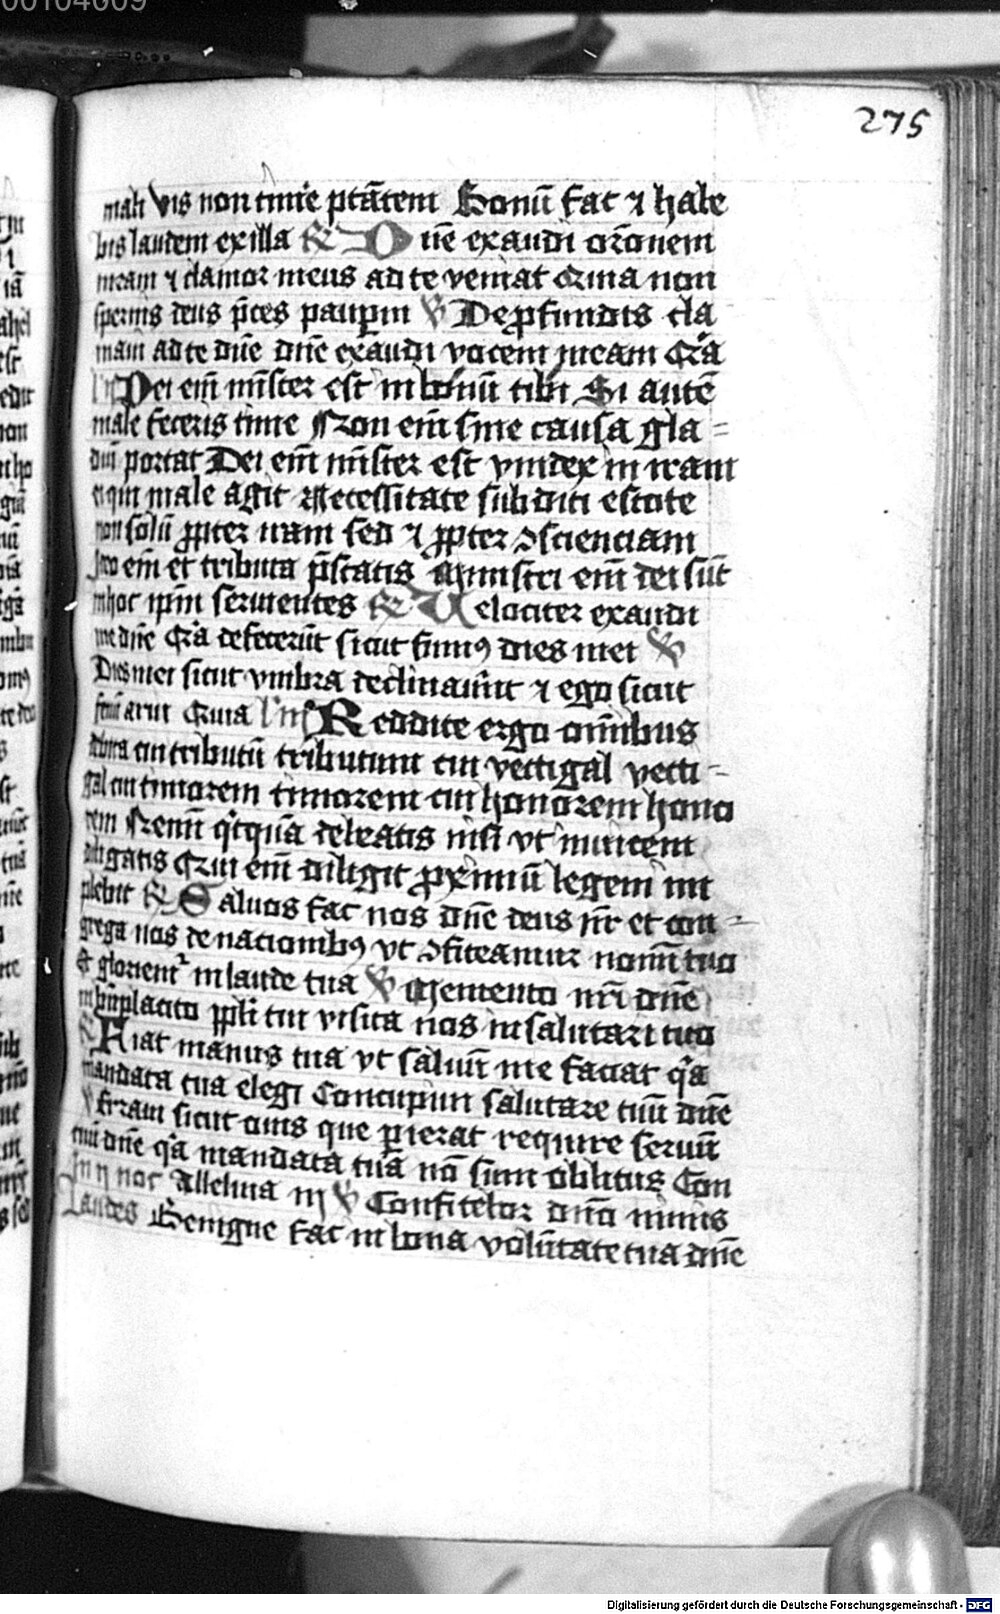 00104609
275
mali Vis non time̅ ptātem Bonū fac ⁊ habe
bis laudem ex illa ℟ Dne̅ exaudi or̄onem
meam ⁊ clamor meus ad te veniat Quia non
spernis deus p̄ces paupm ℣ De pfundis cla
maui ad te dn̄e dn̄e exaudi vocem meam Qr̄a
Dei em̄ mīster est in bonū tibi Si autē
male feceris time Non em̄ sine causa gla=
diū portat Dei em̄ mīster est vindex in iram
ei qui male agit Necessitate subditi estote
non solū ppter iram sed ⁊ ppter ↄscienciam
Ideo em̄ et tributa p̄statis Ministri em̄ dei sūt
in hoc ip̄m seruientes ℟ Uelociter exaudi
me dn̄e Qr̄a defecerūt sicut fumꝰ dies mei ℣
Dies mei sicut vmbra declinauer̄ut ⁊ ego sicut
fenū arui Quia Reddite ergo om̄ibus
debita cui tributū tributum cui vectigal vecti=
gal cui timorem timorem cui honorem hono
rem Nemī qͥtquā debeatis nisi vt inuicem
diligatis Qui em̄ diligit pximū legem im
pleuit ℟ Saluos fac nos dn̄e deus nr̄ et con=
grega nos de nacionibꝰ vt ↄfiteamur nomī tuo
Et glorient᷑ in laude tua ℣ Memento nr̄i dn̄e
in bn̄placito ppli tui visita nos in salutari tuo
℟ Fiat manus tua vt saluū me faciat qͣa
mandata tua elegi Concupiui salutare tuū dn̄e
℣ Erraui sicut ouis que pierat require seruū
tuū dn̄e qͣa mandata tua nō sum oblitus Con
In noc Alleluia ℣ Confitebor dn̄o nimis
Laudes Benigne fac in bona volūtate tua dn̄e
Digitalisierung gefördert durch die Deutsche Forschungsgemeinschaft - DFG